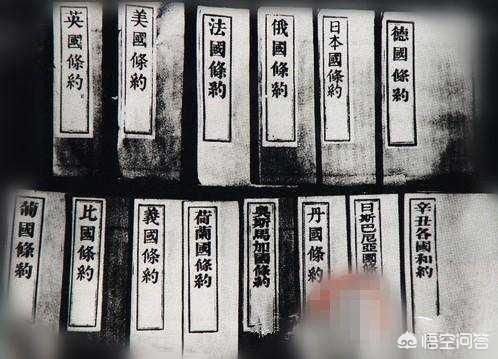 英國條約
美國條約
法國條約
俄國條約
日本國條約
德國條約
葡國條約
比國條約
義國條約
荷蘭國條約
奧斯馬加國條約
丹國條約
日斯巴尼亞國條約
辛丑各國和約
悟空问答